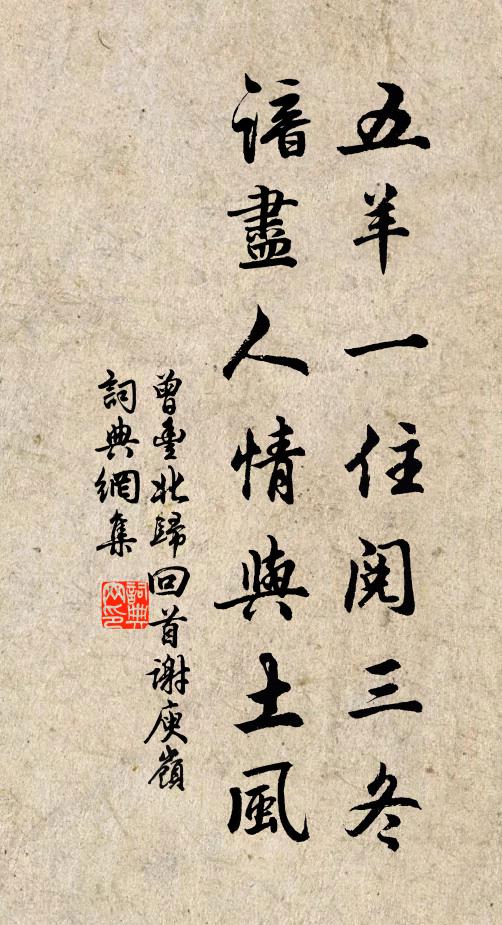 五羊一住閱三冬
諳盡人情與土風
曾豐北歸回首謝庾嶺
詞典網集
詞典
网印